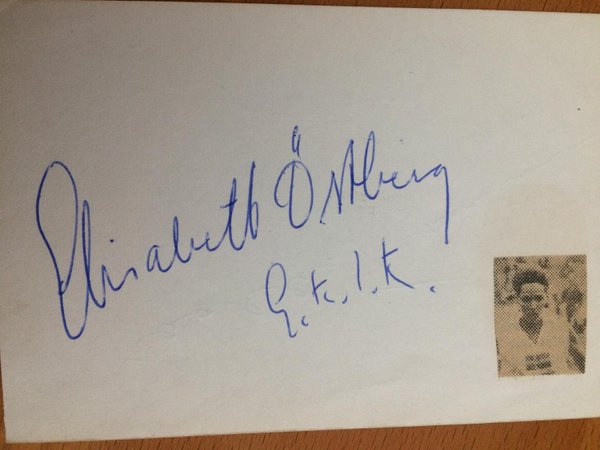 Elisabeth Östberg
G.k.I.k.